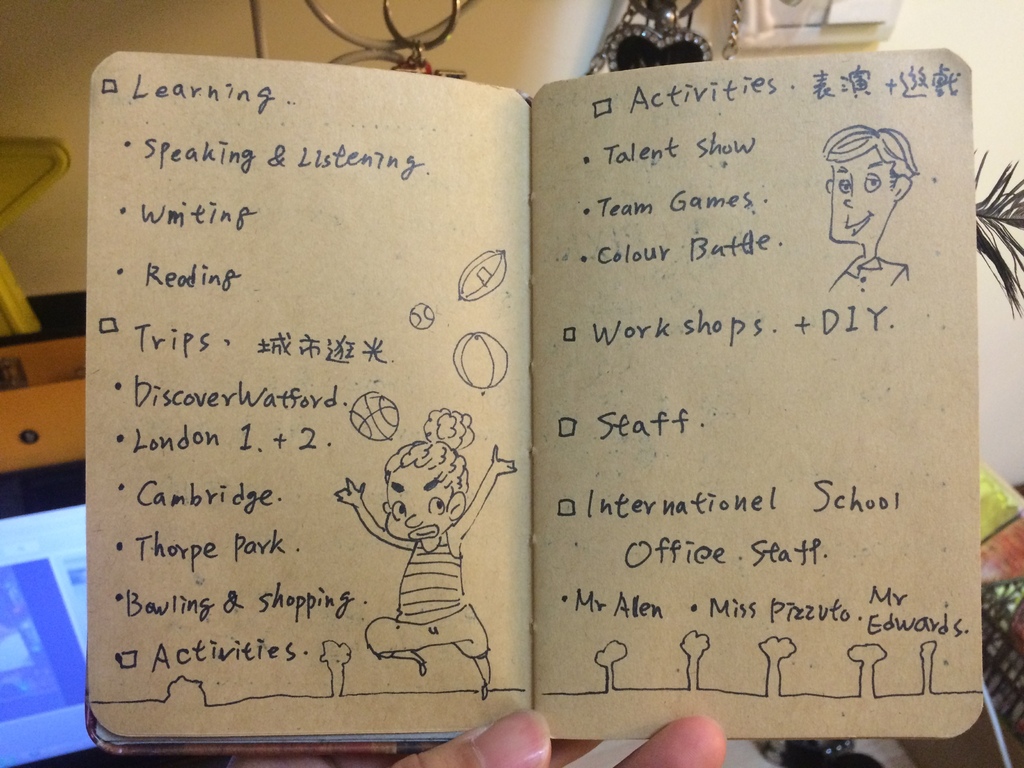 □ Learning.
• Speaking & Listening.
• Writing
• Reading
□ Trips. 城市逛光.
• Discover Watford.
• London 1. + 2.
• Cambridge.
• Thorpe park.
• Bowling & shopping.
□ Activities.
□ Activities. 表演+遊戲
• Talent show
• Team Games.
• Colour Battle.
□ Work shops. + DIY.
□ Staff.
□ Internationel School
Office. Staff.
• Mr Alen • Miss Pizzuto. Mr Edwards.